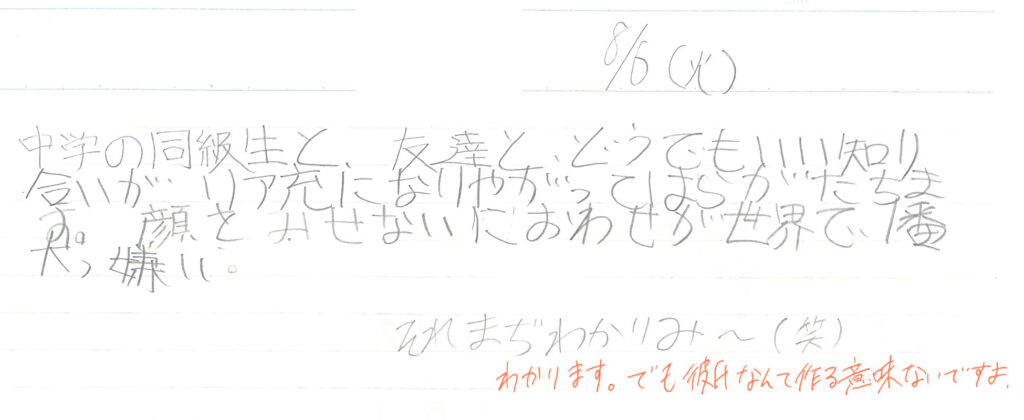 8/6(火)
中学の同級生と、友達と、どうでもいい知り
合いが リア充になりやがってはらがたちま
す。顔をみせないにおわせが世界で、1番
犬っ嫌い。
それまぢわかりみ～(笑)
わかります。でも彼氏なんて作る意味ないですよ